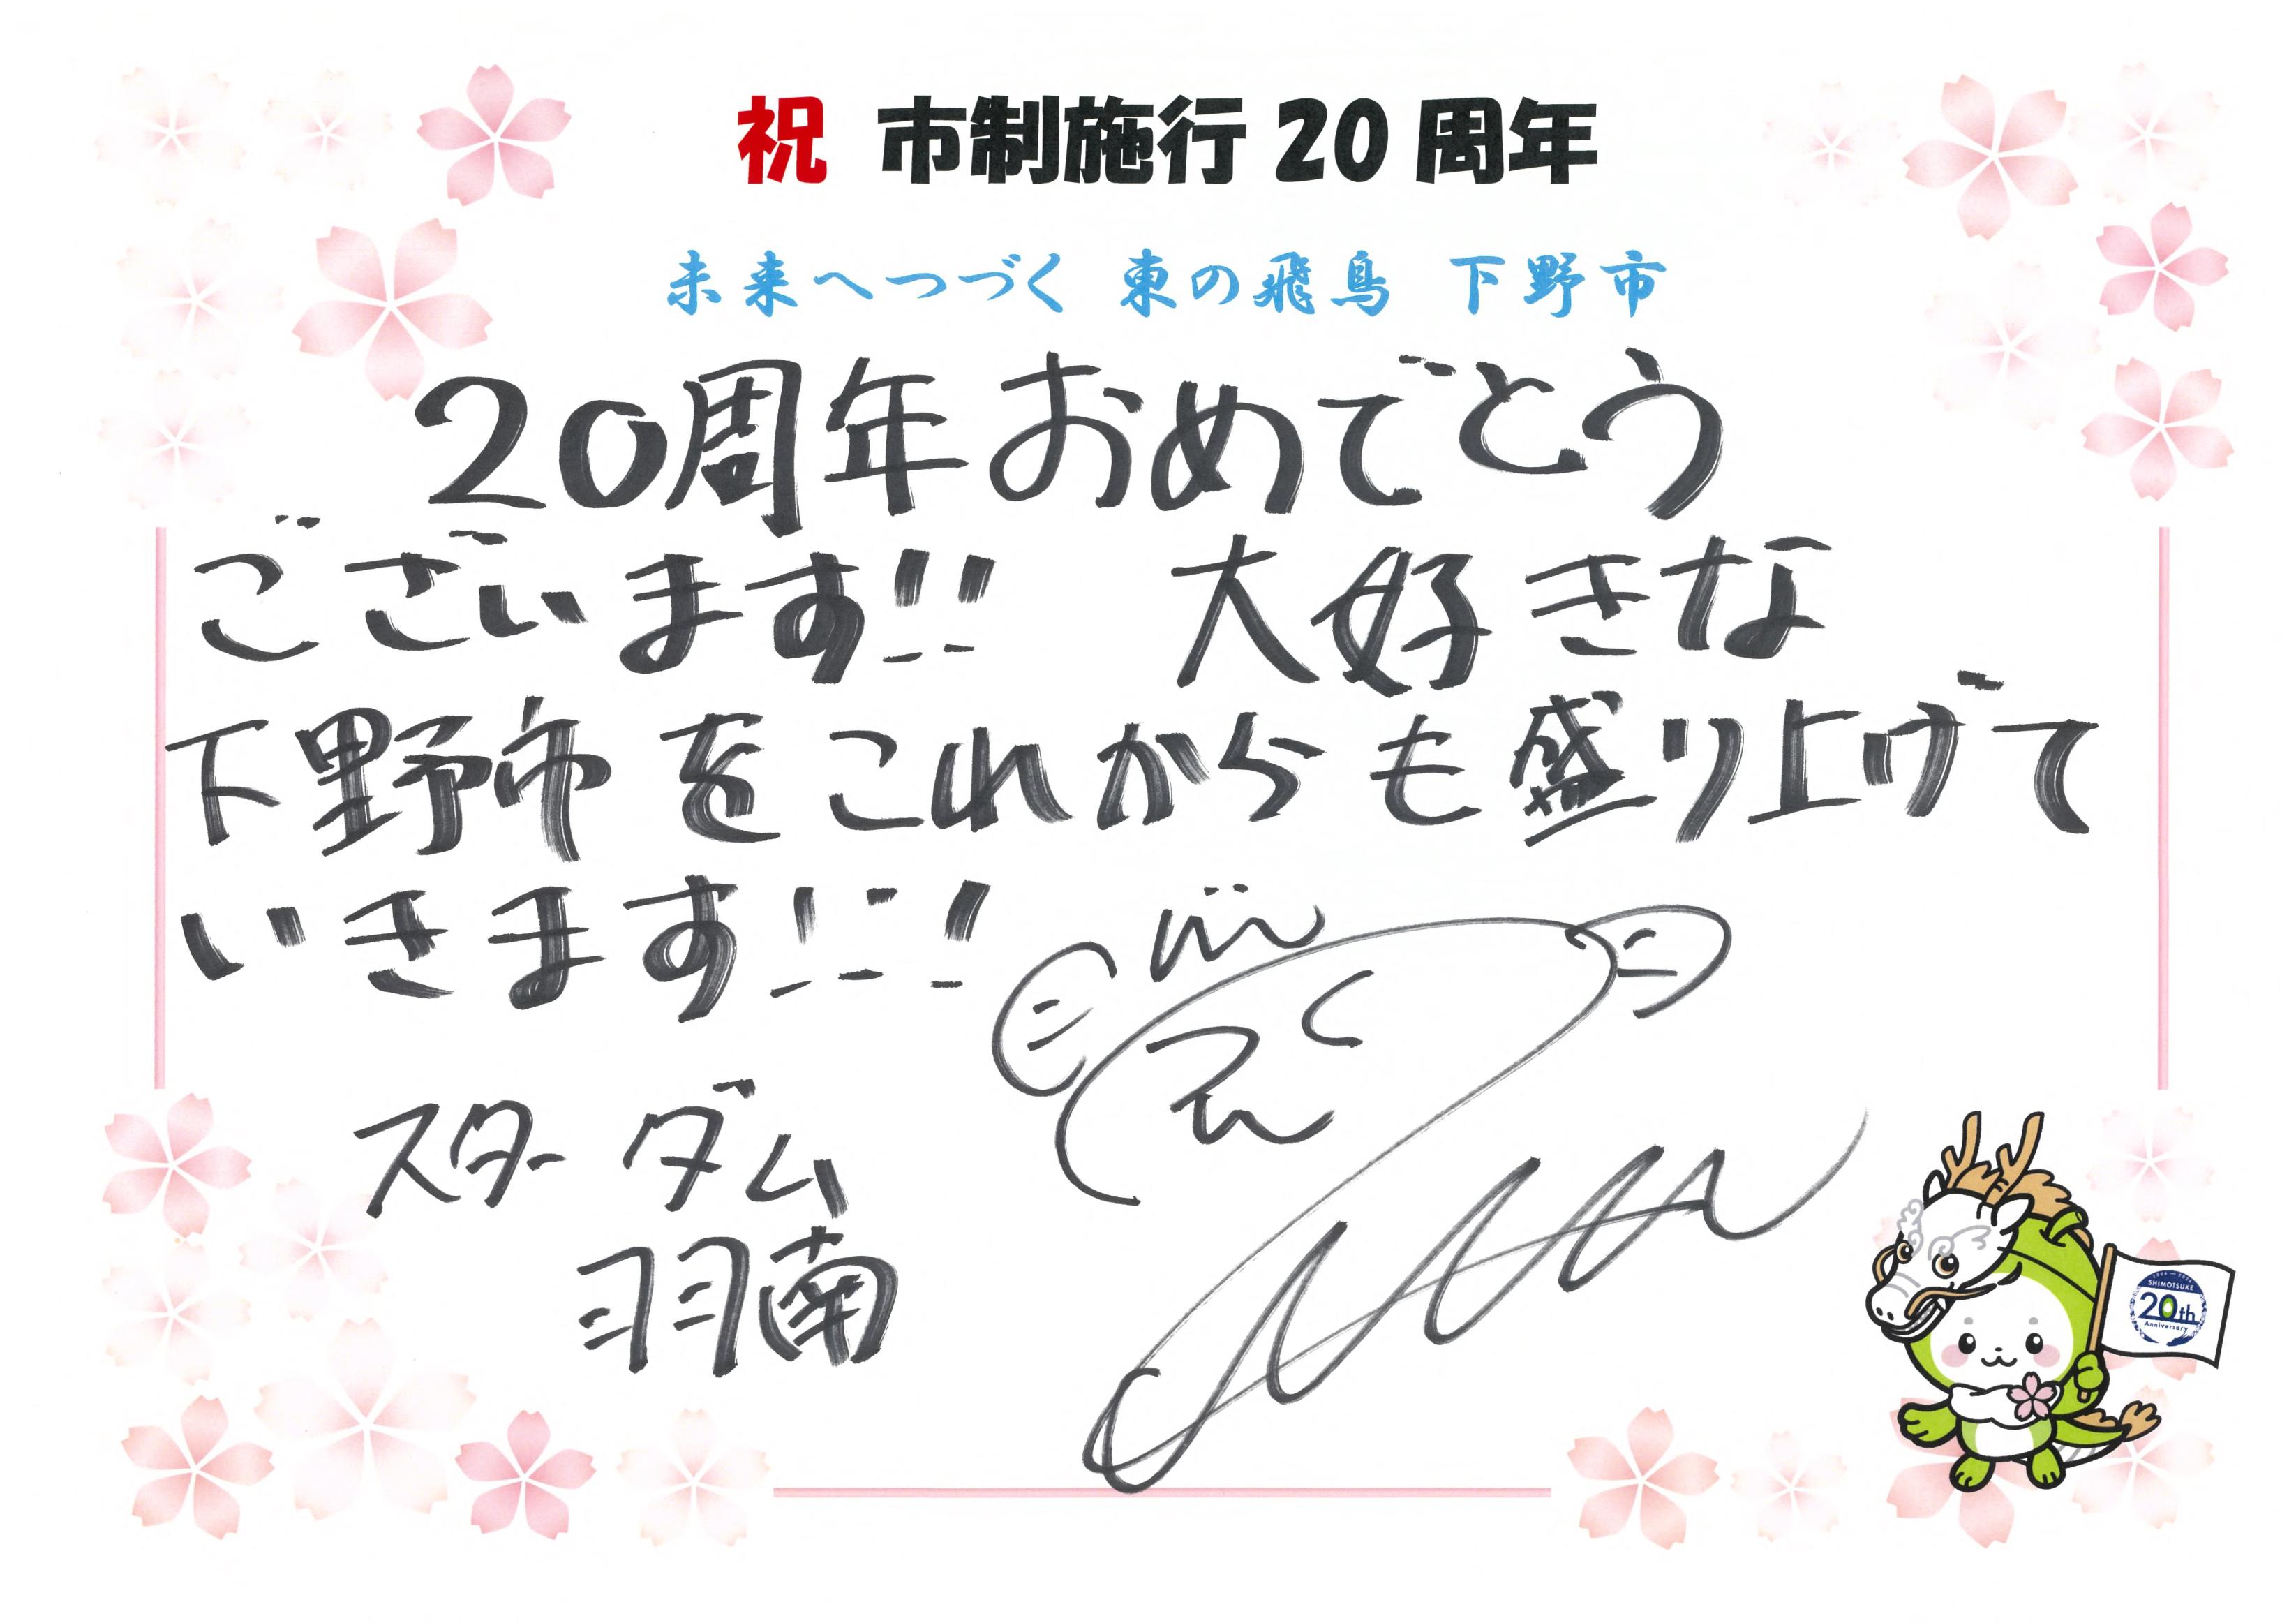 祝 市制施行20周年
未来へつづく 東の飛鳥 下野市
20周年おめでとう
ございます!! 大好きな
下野市をこれからも盛り上げて
いきます!!!
スターダム
羽南
SHIMOTSUKE
20th
Anniversary